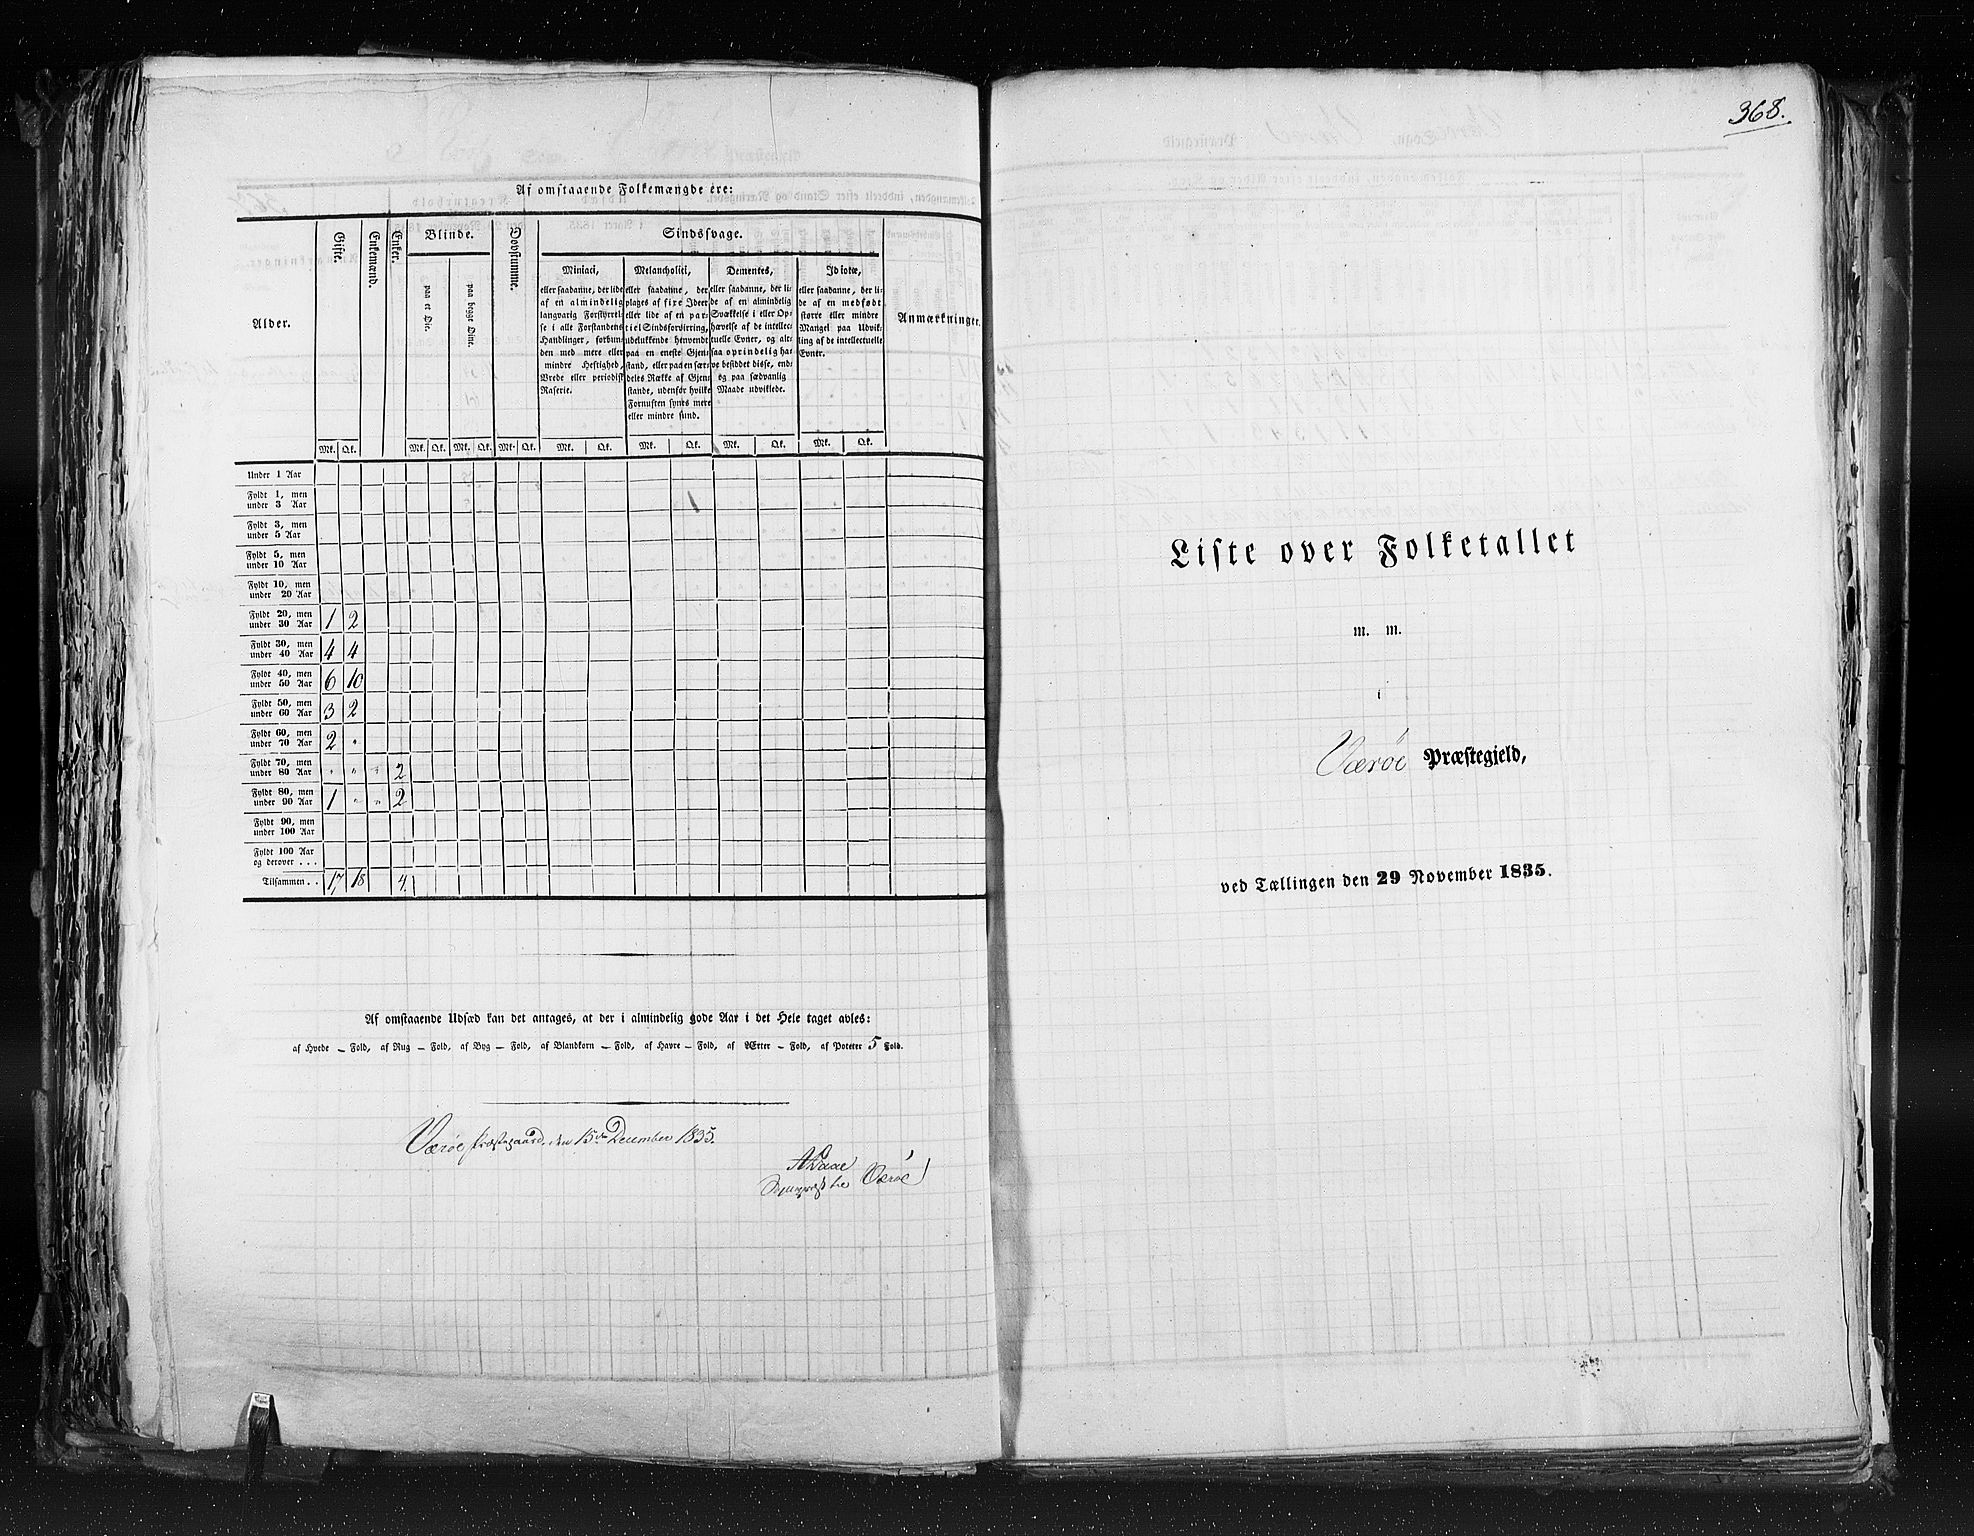 Af omstaaende Folkemængde ere:
Alder.
Gifte.
Enkemænd.
Enker.
Blinde.
paa et Øie.
paa begge Øine.
Døvstumme.
Sindssvage.
Miniaci,
eller saadanne, der lide
af en almindelig
langvarig Forstyrrel-
se i alle Forstandens
Handlinger, forbun-
den med mere eller
mindre Heftighed,
Vrede eller periodisk
Raserie.
Melancholici,
eller saadanne, der
plages af fixe Ideer
eller lide af en par-
tiel Sindsforvirring,
udelukkende henvendt
paa en eneste Gjen-
stand, eller paa en sær-
deles Række af Gjen-
stande, udenfor hvilke
Fornuften synes mere
eller mindre sund.
Dementes,
eller saadanne, der li-
de af en almindelig
Svækkelse i eller Op-
hævelse af de intellec-
tuelle Evner, og alt-
saa oprindelig ha-
ve besiddet disse, end-
og paa sædvanlig
Maade udviklede.
Idiotæ,
eller saadanne, der li-
de af en medfødt
større eller mindre
Mangel paa Udvik-
ling af de intellectuelle
Evner.
Anmærkninger.
Mk. Qk. Mk. Qk. Mk. Qk. Mk. Qk. Mk. Qk. Mk. Qk. Mk. Qk. Mk. Qk.
Under 1 Aar
Fyldt 1, men
under 3 Aar 1
Fyldt 3, men
under 5 Aar
Fyldt 5, men
under 10 Aar
Fyldt 10, men
under 20 Aar
Fyldt 20, men
under 30 Aar 1 2
Fyldt 30, men
under 40 Aar 4 4
Fyldt 40, men
under 50 Aar 6 10
Fyldt 50, men
under 60 Aar 3 2
Fyldt 60, men
under 70 Aar 2 "
Fyldt 70, men
under 80 Aar " " " 2
Fyldt 80, men
under 90 Aar 1 " " 2
Fyldt 90, men
under 100 Aar
Fyldt 100 Aar
og derover . . .
Tilsammen . . 17 18 4.
Af omstaaende Udsæd kan det antages, at der i almindelig gode Aar i det Hele taget avles:
af Hvede – Fold, af Rug – Fold, af Byg – Fold, af Blandkorn – Fold, af Havre – Fold, af Ærter – Fold, af Poteter 5 Fold.
Værøe Præstegaard, den 15de December 1835.
A Daae
Sognepræst til Værøe
368.
Liste over Folketallet
m. m.
i
Værøe Præstegjeld,
ved Tællingen den 29 November 1835.